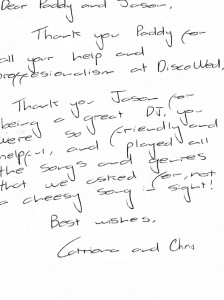 Dear Paddy and Jason,
Thank you Paddy for
all your help and
proffesionalism at DiscoWed,
Thank you Jason for
being a great DJ, you
were so friendly and
helpful, and played all
the songs and genres
that we asked for, not
a cheesy song in sight!
Best wishes,
Catriona and Chris